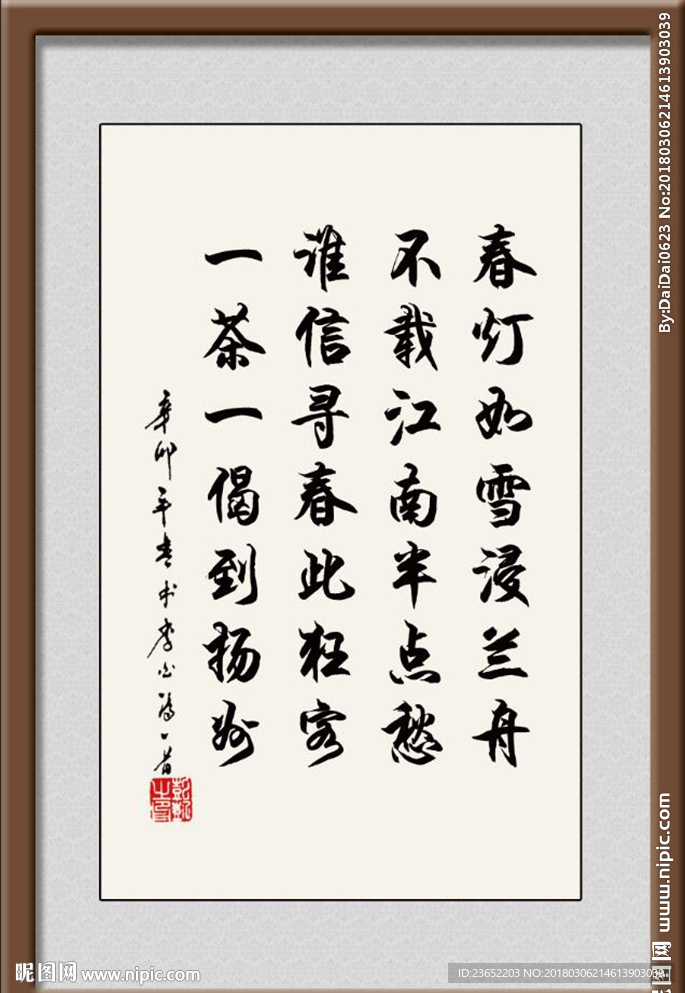 春灯如雪浸兰舟
不载江南半点愁
谁信寻春此狂客
一茶一偈到扬州
辛卯年春书李白诗一首
By:DaiDai0623 No:20180306214613903039
www.nipic.com
昵图网
昵图网 www.nipic.com
ID:23652203 NO:20180306214613903039